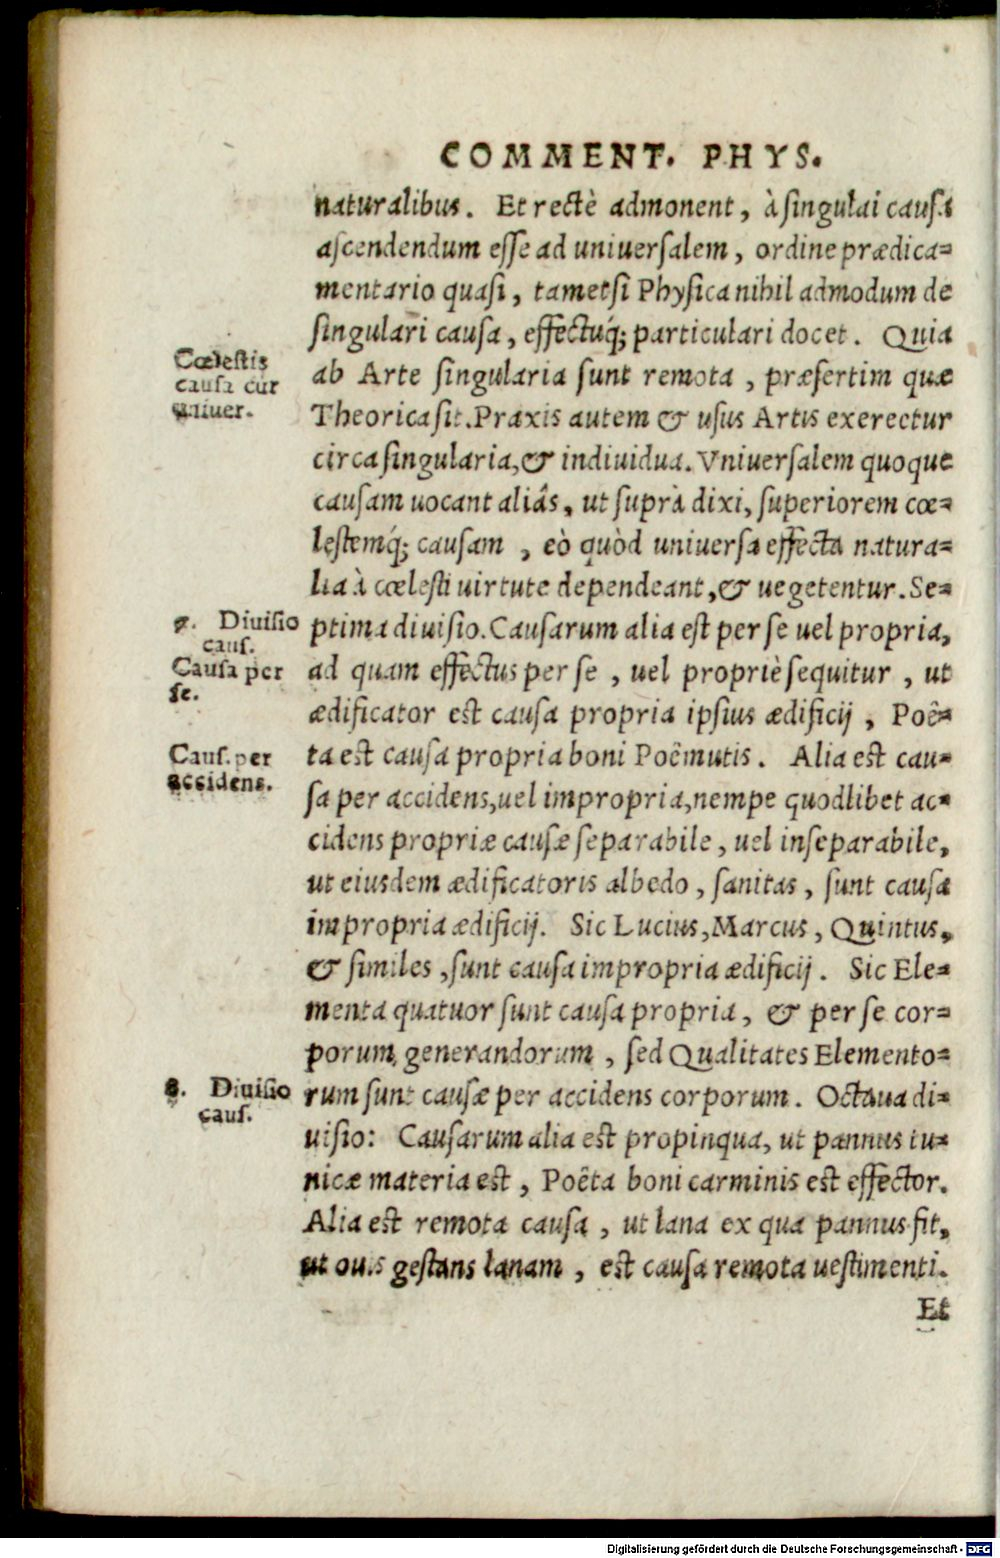 COMMENT. PHYS.
naturalibus. Et rectè admonent, à singulai causa
ascendendum esse ad uniuersalem, ordine prædica-
mentario quasi, tametsi Physica nihil admodum de
singulari causa, effectuq́; particulari docet. Quia
Cœlestis
causa cur
uniuer.
ab Arte singularia sunt remota, præsertim quæ
Theorica sit. Praxis autem & usus Artis exerectur
circa singularia, & indiuidua. Vniuersalem quoque
causam uocant aliâs, ut suprà dixi, superiorem cœ-
lestemq́; causam, eò quòd uniuersa effecta natura-
lia à cœlesti uirtute dependeant, & uegetentur. Se-
7. Diuisio
caus.
ptima diuisio. Causarum alia est per se uel propria,
Causa per
se.
ad quam effectus per se, uel propriè sequitur, ut
ædificator est causa propria ipsius ædificij, Poë-
Caus. per
accidens.
ta est causa propria boni Poëmutis. Alia est cau-
sa per accidens, uel impropria, nempe quodlibet ac-
cidens propriæ causæ separabile, uel inseparabile,
ut eiusdem ædificatoris albedo, sanitas, sunt causa
impropria ædificij. Sic Lucius, Marcus, Quintus,
& similes, sunt causa impropria ædificij. Sic Ele-
menta quatuor sunt causa propria, & per se cor-
porum generandorum, sed Qualitates Elemento-
8. Diuisio
caus.
rum sunt causæ per accidens corporum. Octaua di-
uisio: Causarum alia est propinqua, ut pannus tu-
nicæ materia est, Poëta boni carminis est effector.
Alia est remota causa, ut lana ex qua pannus fit,
ut ouis gestans lanam, est causa remota uestimenti.
Et
Digitalisierung gefördert durch die Deutsche Forschungsgemeinschaft - DFG